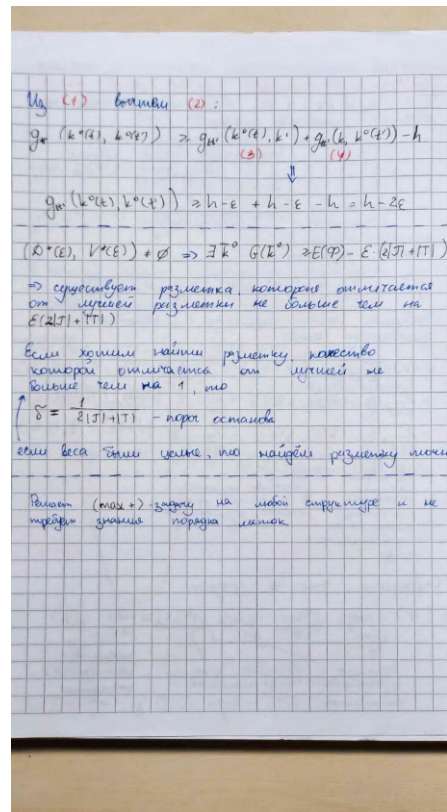 Из (1) вычтем (2):
g_{tt'} (k°(t), k°(t')) ≥ g_{tt'} (k°(t), k') + g_{tt'} (k, k°(t')) − h
(3) (4)
⇓
g_{tt'} (k°(t), k°(t')) ≥ h−ε + h−ε −h = h−2ε
(D*(ε), V*(ε)) ≠ ∅ ⇒ ∃ k̄° G(k̄°) ≥ E(Φ) − ε·(2|𝒯|+|T|)
⇒ существует разметка, которая отличается
от лучшей разметки не больше чем на
ε(2|𝒯|+|T|)
Если хотим найти разметку качество
которой отличается от лучшей не
больше чем на 1, то
δ = 1/(2|𝒯|+|T|) – порог останова
если веса были целые, то найдём разметку
Решает (max,+)-задачу на любой структуре и не
требует знания порядка меток